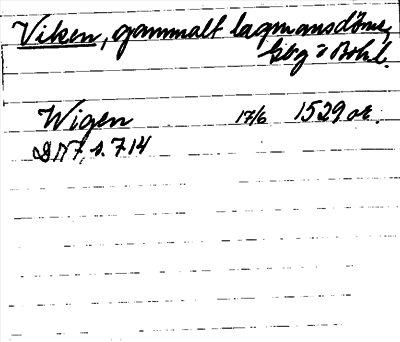 Viken, gammalt lagmansdöme,
Gbg o Bohl.
Wigen 17/6 1529 or.
DN 7, s. 714